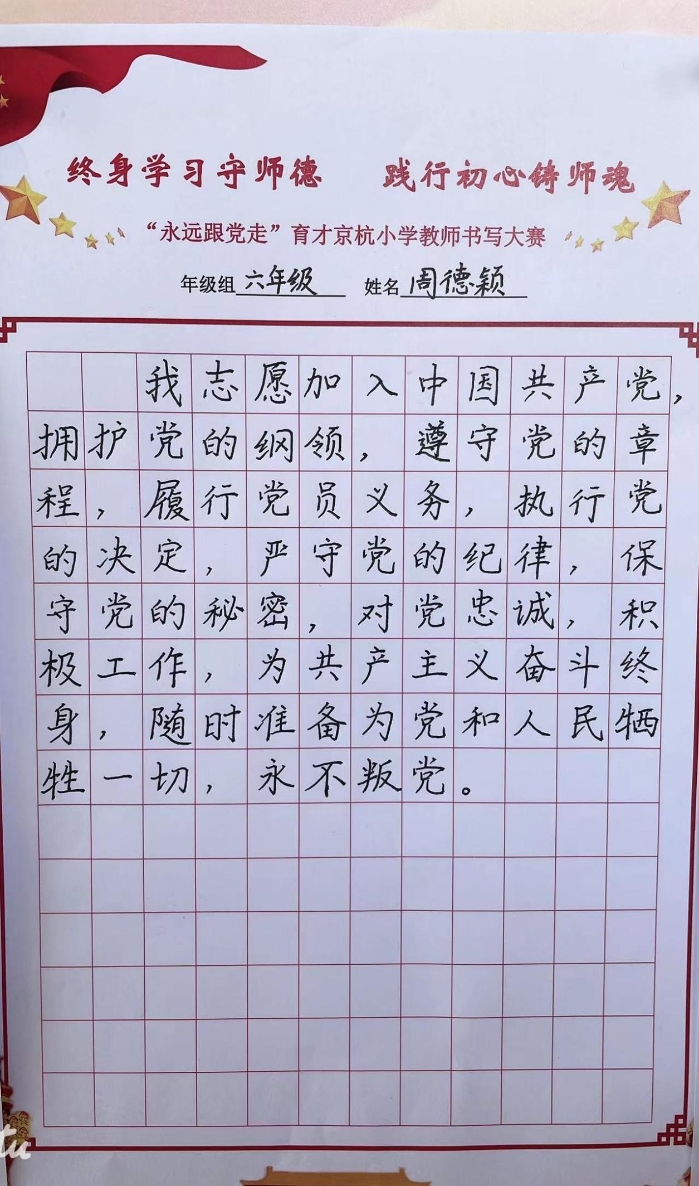 终身学习守师德 践行初心铸师魂
“永远跟党走”育才京杭小学教师书写大赛
年级组 六年级 姓名 周德颖
我志愿加入中国共产党，
拥护党的纲领，遵守党的章
程，履行党员义务，执行党
的决定，严守党的纪律，保
守党的秘密，对党忠诚，积
极工作，为共产主义奋斗终
身，随时准备为党和人民牺
牲一切，永不叛党。